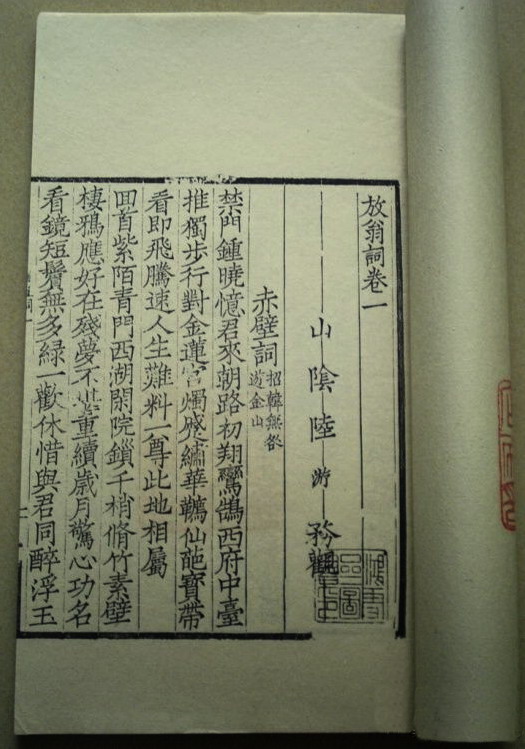 放翁詞卷一
山陰陸游務觀
赤壁詞招韓無咎遊金山
禁門鍾曉憶君來朝路初翔鸞鵠西府中臺
推獨步行對金蓮宮燭蹙繡華韉仙葩寶帶
看即飛騰速人生難料一尊此地相屬
回首紫陌青門西湖閑院鎖千梢脩竹素壁
棲鴉應好在殘夢不堪重續歲月驚心功名
看鏡短鬢無多綠一歡休惜與君同醉浮玉